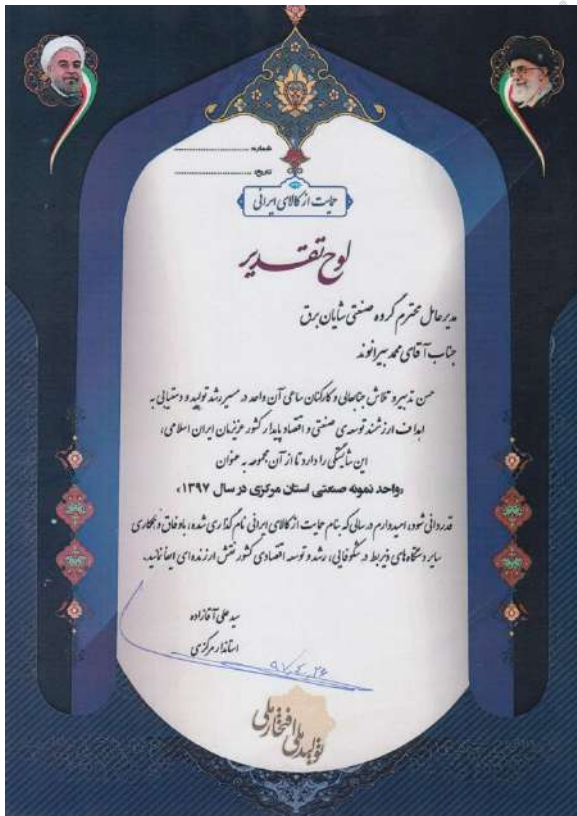 شماره: ........................
تاریخ: ........................
حمایت از کالای ایرانی
لوح تقدیر
مدیرعامل محترم گروه صنعتی شایان برق
جناب آقای محمد بیرانوند
حسن تدبیر و تلاش جنابعالی و کارکنان ساعی آن واحد در مسیر رشد تولید و دستیابی به
اهداف ارزشمند توسعه‌ی صنعتی و اقتصاد پایدار کشور عزیزمان ایران اسلامی،
این شایستگی را دارد تا از آن مجموعه به عنوان
«واحد نمونه صنعتی استان مرکزی در سال ۱۳۹۷»
قدردانی شود، امیدوارم در سالی که بنام حمایت از کالای ایرانی نام گذاری شده، با وفاق و همکاری
سایر دستگاه‌های ذیربط در شکوفایی، رشد و توسعه اقتصادی کشور نقش ارزنده‌ای ایفا نمائید.
سید علی آقازاده
استاندار مرکزی
۹۷,۴,۲۶
تولید ملی افتخار ملی